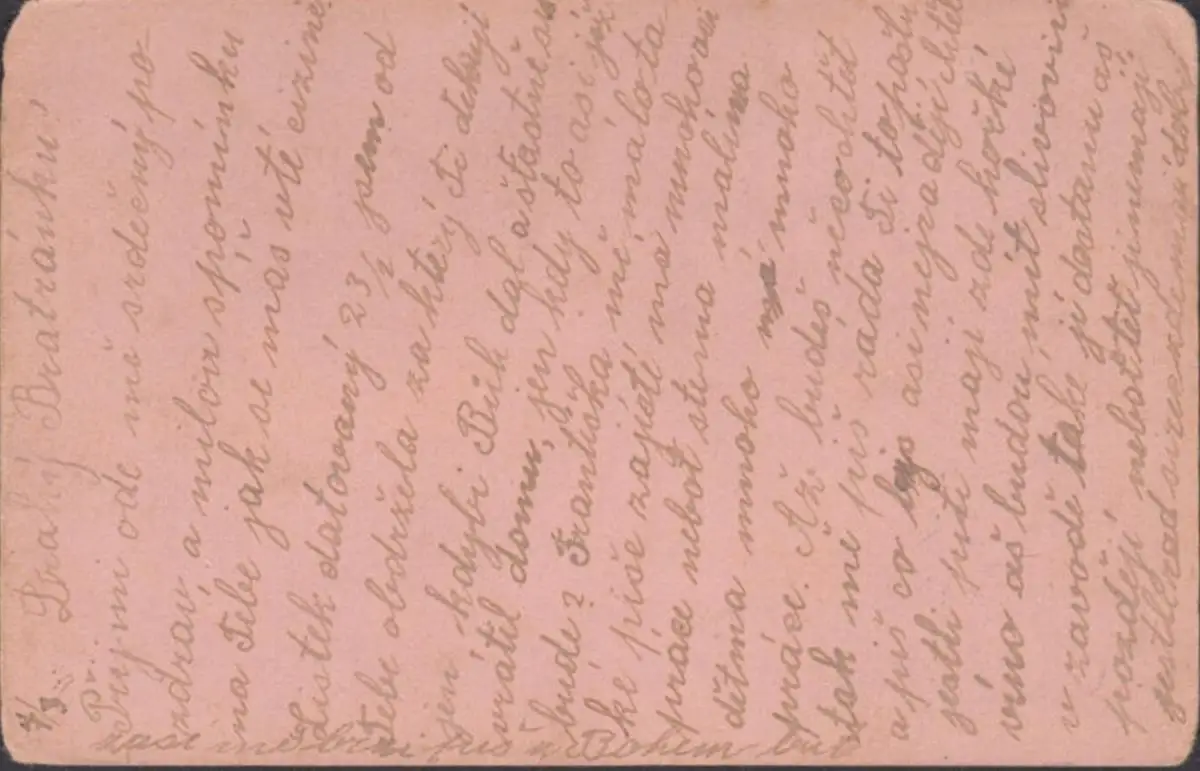 4/3. Drahý Bratránku
Přijmi ode mě srdečný po-
zdrav a milou spomínku
na Tebe jak se máš v té cizině
Lístek datovaný 23/2 jsem od
Tebe obdržela za který Ti děkuji
jen kdybi Bůh dal a štastně su
vrátil domu, jen kdy to asi již
bude? Františka mě málo ta-
ké píše zajisté má mnoho
práce nebot s těma malýma
dětma mnoho má mnoho
práce. Až budeš něco chtět
tak mě piš ráda Ti to pošlu
a piš co bys asi nejradějí chtěl
jestli pití mají zde hořké
víno až budou mít slivovici
v zavodě také jí dostanu až
pozdějí nebot ted' jí nemají
jestli rad
naší piš s Bohem buť